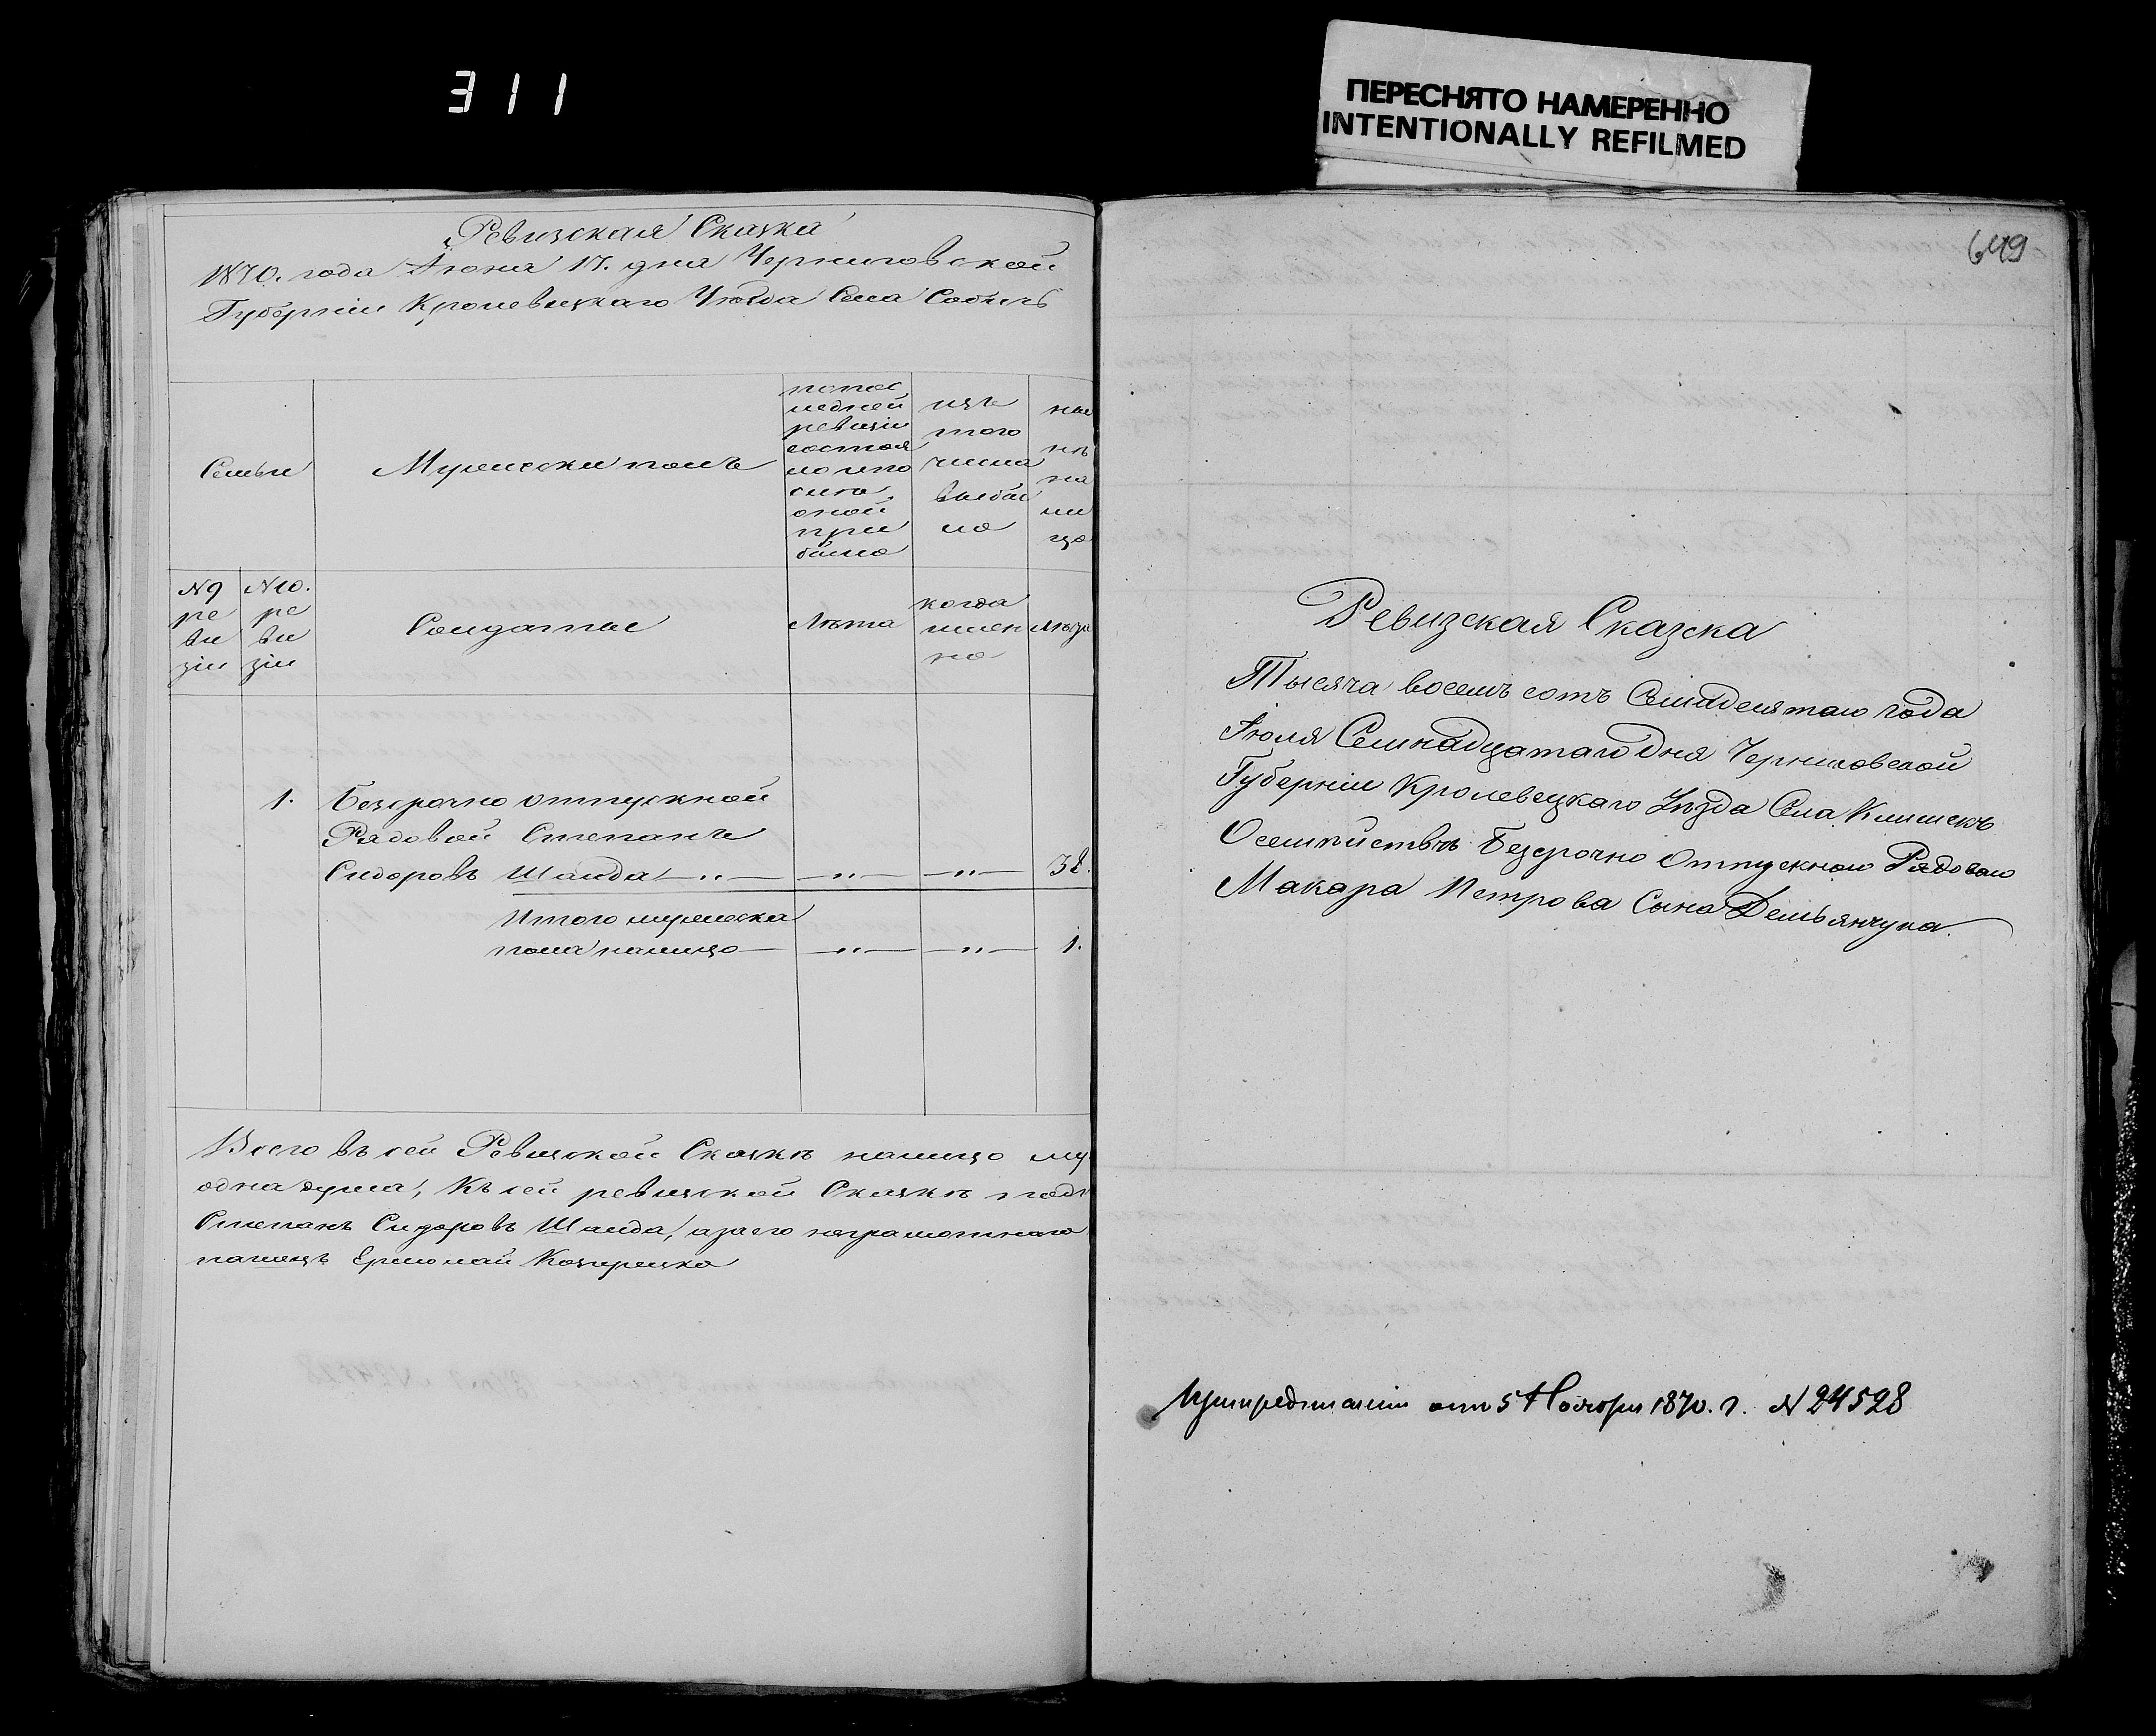 311
ПЕРЕСНЯТО НАМЕРЕННО
INTENTIONALLY REFILMED
Ревизская Сказка
1870. года Іюня 17. дня Черниговской
Губерніи Кролевецкаго Уѣзда Села Собичъ
Семьи
Мужески полъ
попос
ледней
ревизіи
состоя
ло ипо
слѣ
оной
при
было
изъ
того
числа
выбы
ло
ны
нѣ
на
ли
цо
№ 9
ре
ви
зіи
№ 10.
ре
ви
зіи
Солдаты
Лѣта
когда
имен
но
Лѣта
1. Безсрочно отпускной
Рядовой Степанъ
Сидоровъ Шанда — „ — — „ — — „ — 38.
Итого мужеска
пола налицо — — „ — — „ — 1.
Всего въ сей Ревизской Сказкѣ налицо му
одна душа, Къ сей ревизской Сказкѣ
Степанъ Сидоровъ Шанда, азаего неграмотнаго
Козиренко
649
Ревизская Сказска
Тысяча восемъ сотъ Семидесятаго года
Іюля Семнадцатаго Дня Черниговской
Губерніи Кролевецкаго Уѣзда Села Клишекъ
Осемѣйствѣ Безсрочно Отпускнаго Рядоваго
Макара Петрова Сына Демьянчука.
отъ 5 Ноября 1870. г. № 24528